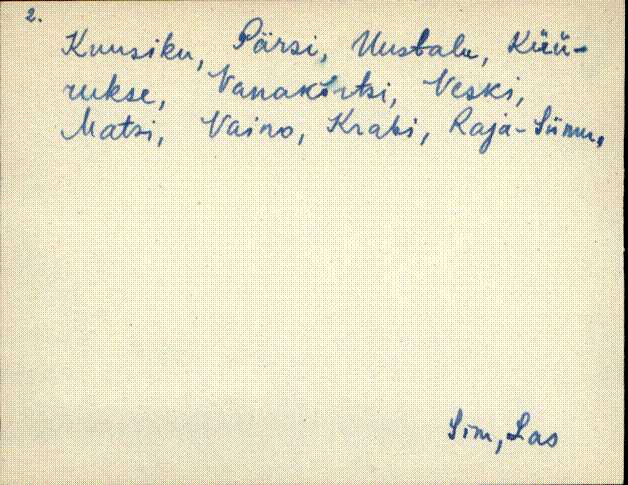 2.
Kuusiku, Pärsi, Uustalu, Küü-
rukse, Vanakõrtsi, Veski,
Matsi, Vaino, Krabi, Raja-Siimu,
Sim, Las